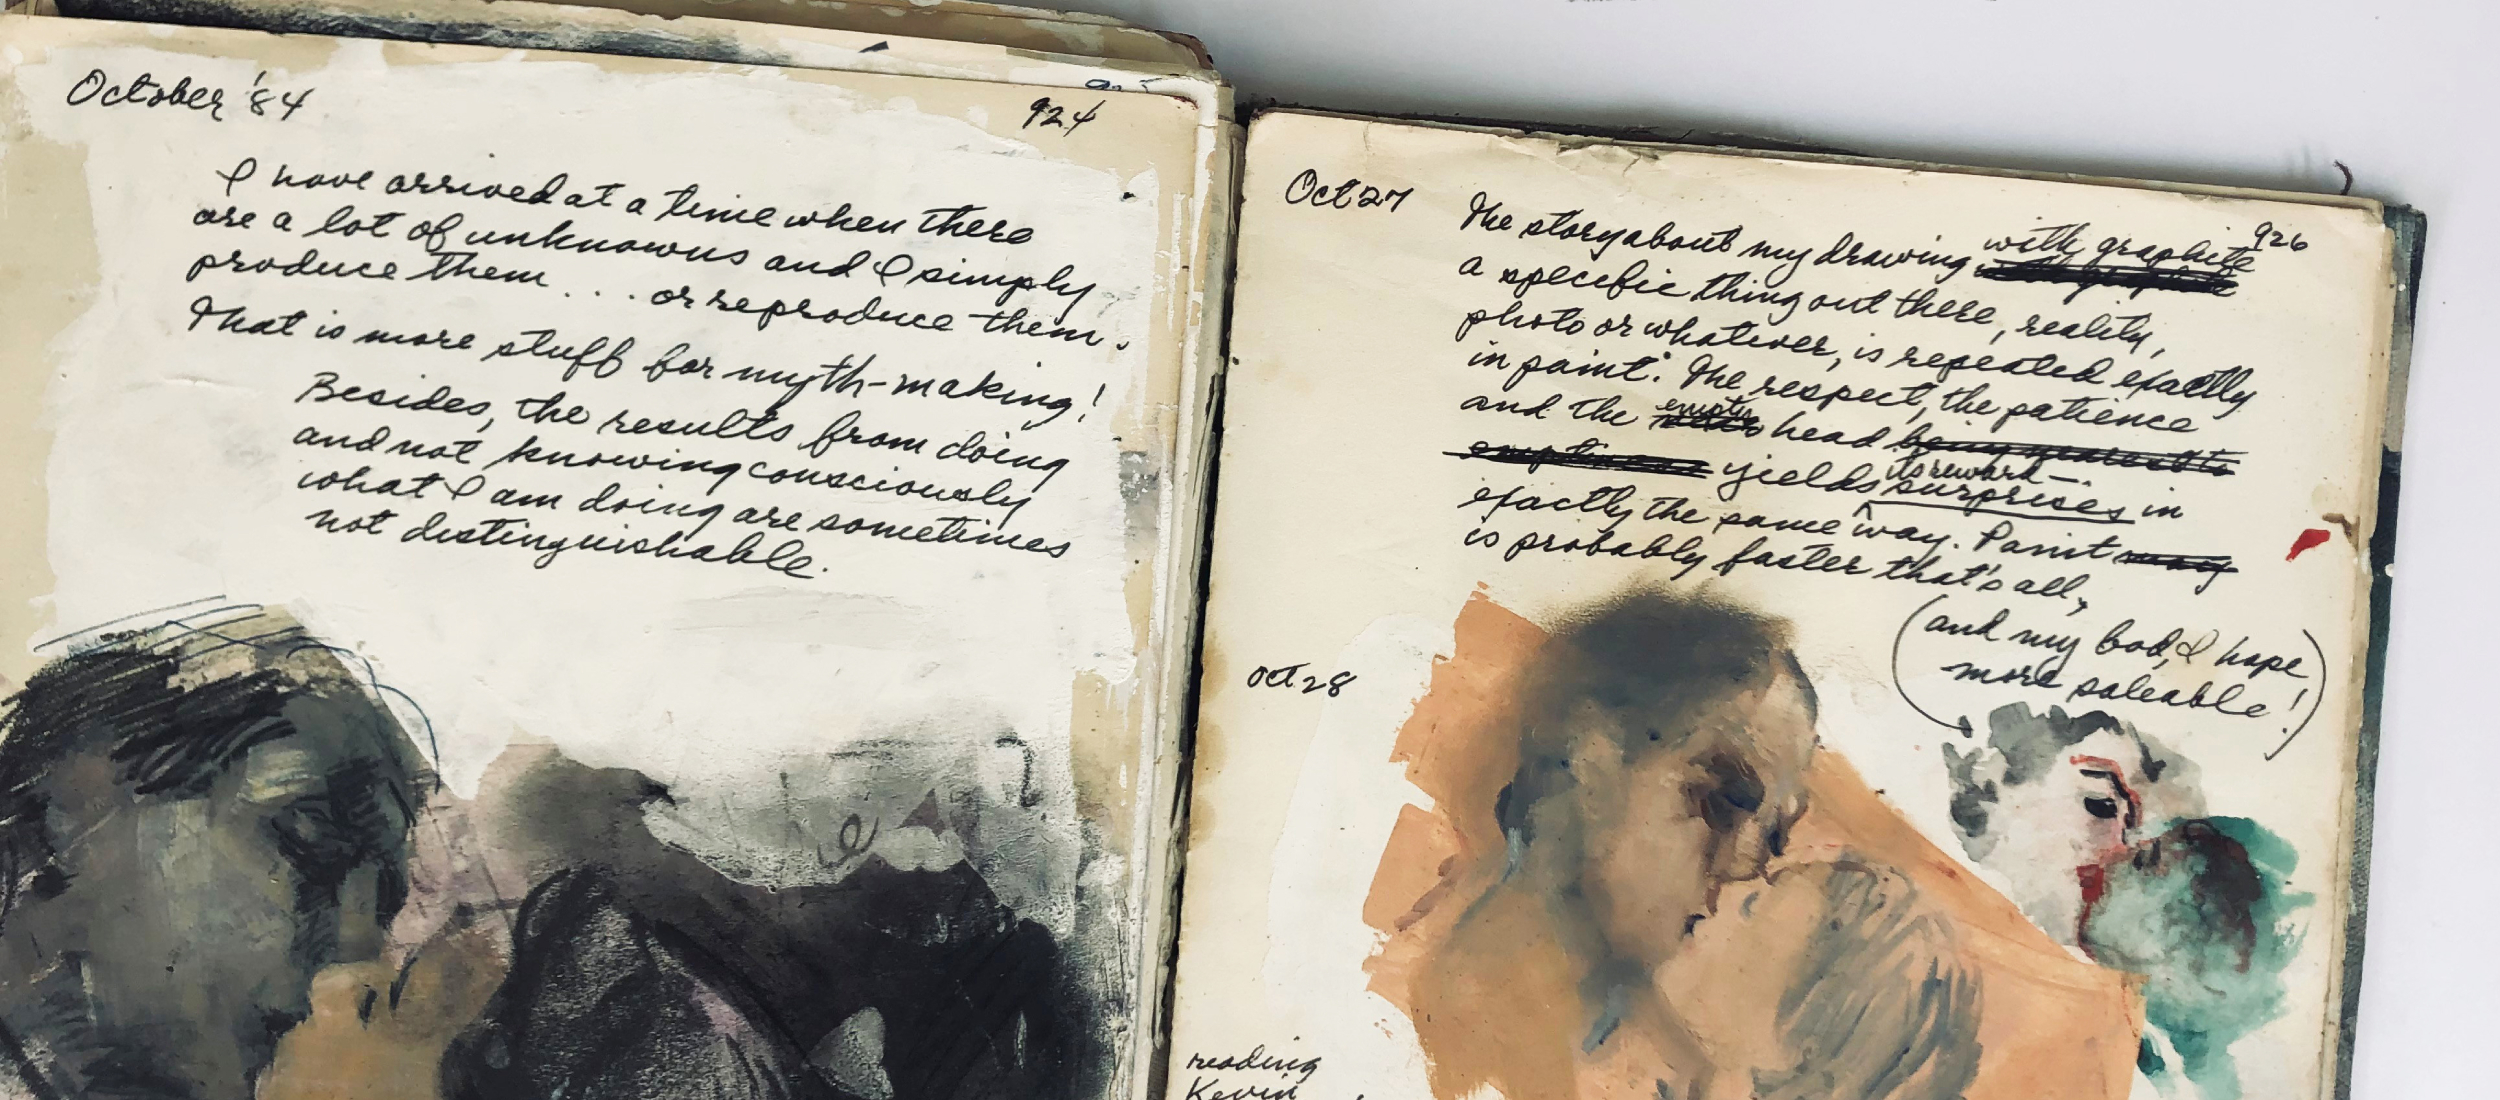 October '84
924
I have arrived at a time when there
are a lot of unknowns and I simply
produce them.... or reproduce them.
That is more stuff for myth-making!
Besides, the results from doing
and not knowing consciously
what I am doing are sometimes
not distinguishable.
Oct 27
926
The story about my drawing with graphite
a specific thing out there, reality,
photo or whatever, is repeated exactly
in paint. The respect, the patience
and the empty head
yields its reward — surprises in
exactly the same way. Paint
is probably faster that's all,
(and my God, I hope
more saleable!)
Oct 28
reading
Kevin